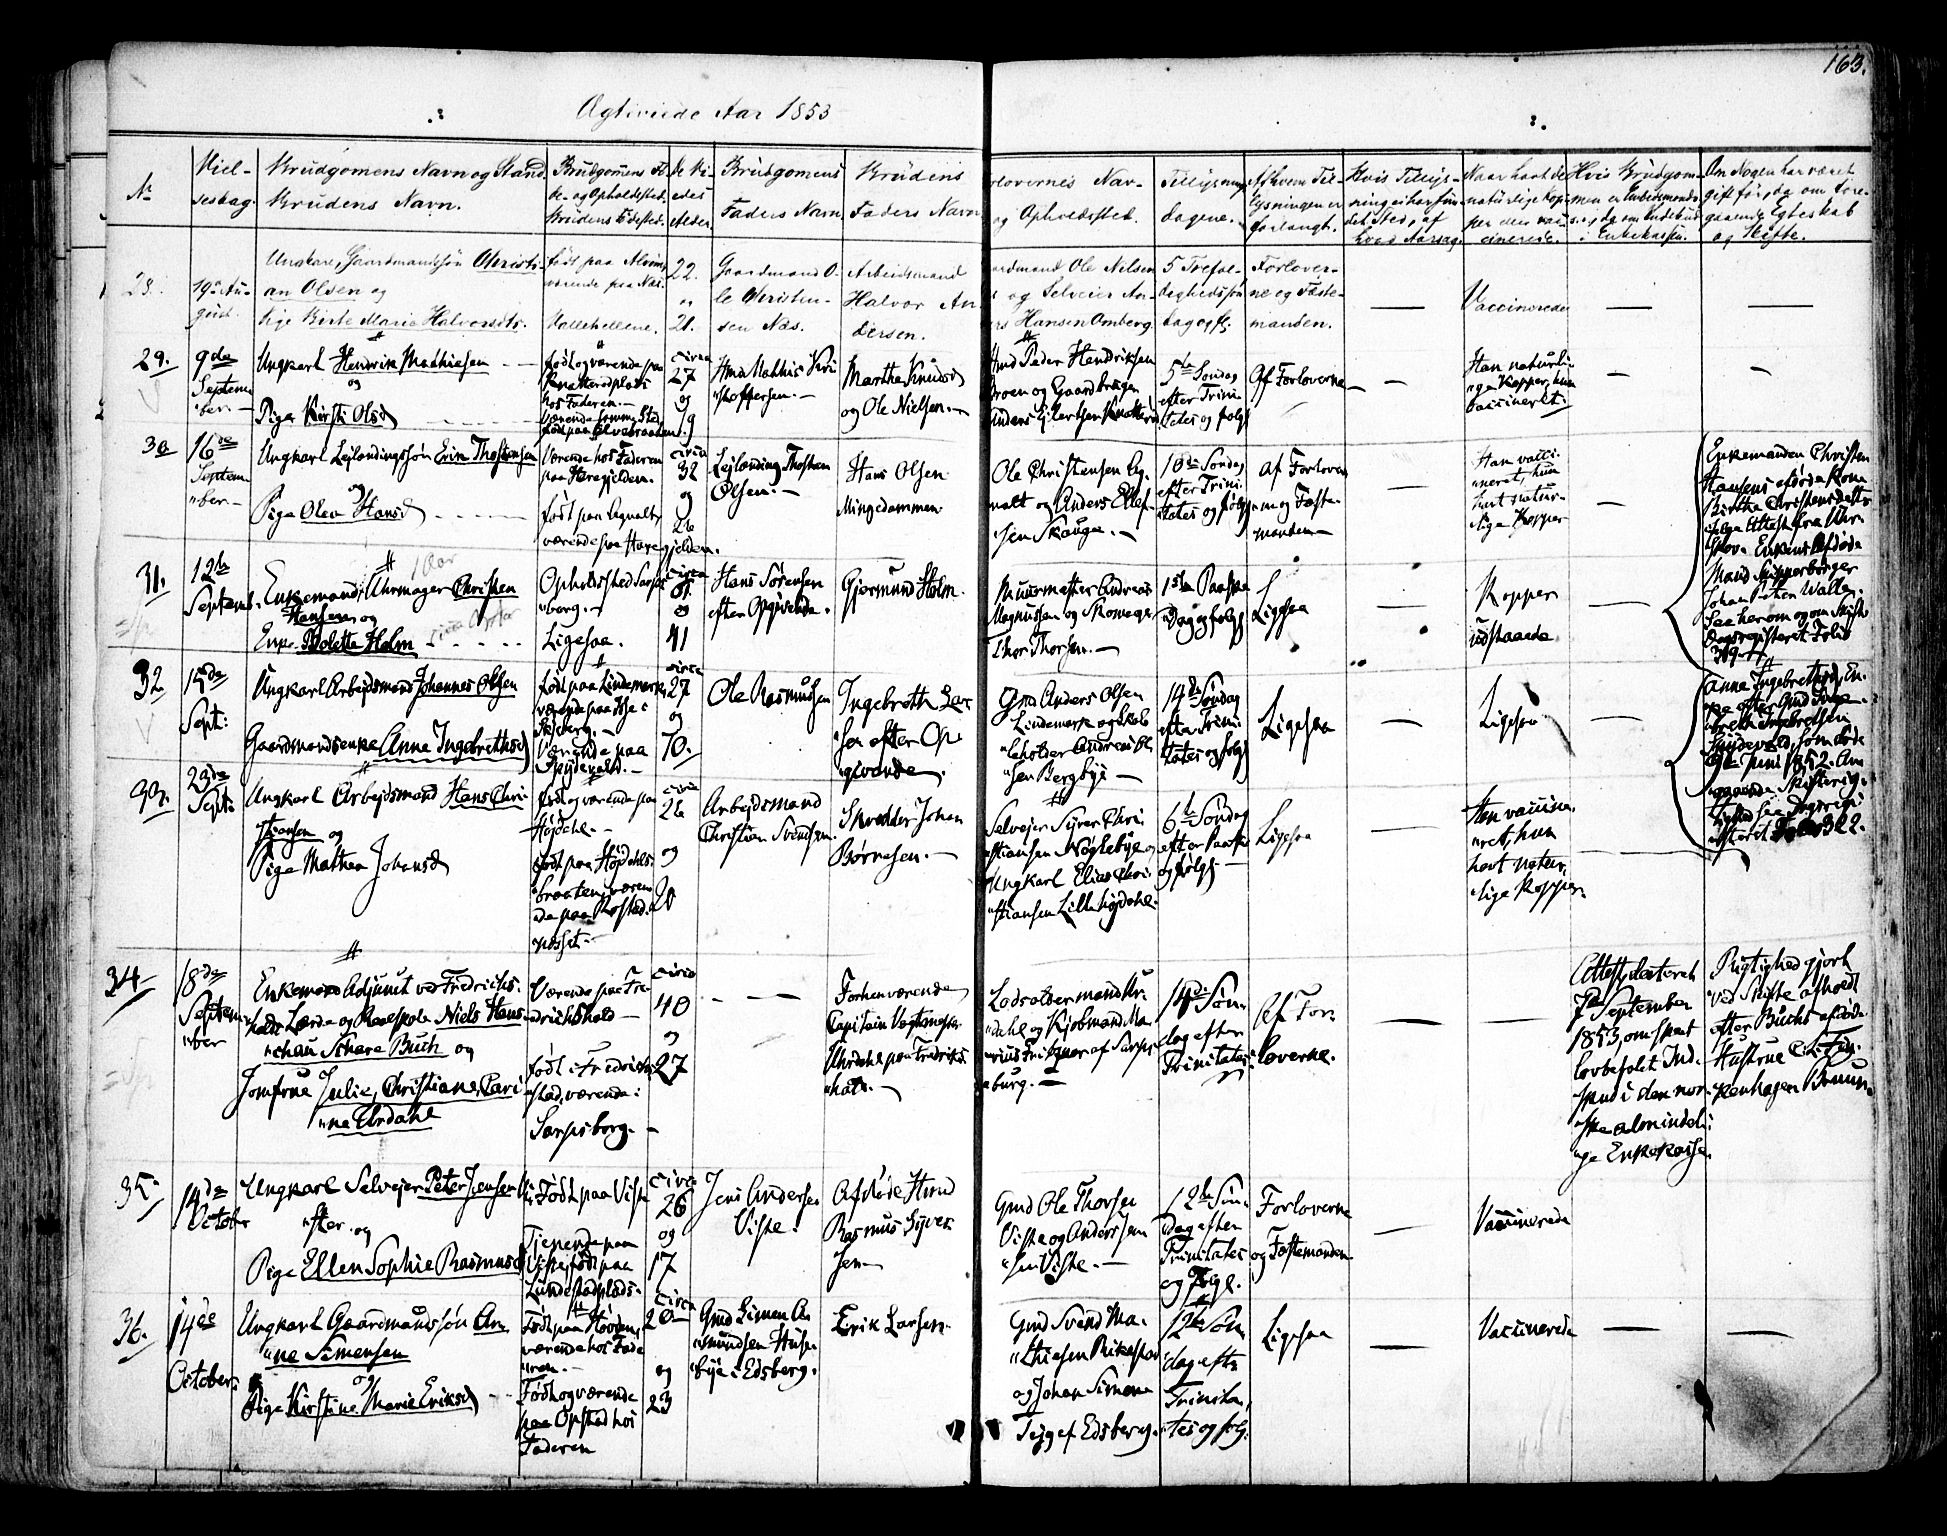 163.
Ægteviede Aar 1853
No
Viel-
sesdag.
Brudgomens Navn og Stand
Brudens Navn.
Brudgomens Fø-
de- og Opholdsted.
Brudens Fødested.
De Vi-
edes
Alder.
Brudgomens
Faders Navn
Brudens
Faders Navn
rlovernes Nav-
og Opholdsted.
Tillysnings
dagene.
Af hvem Til-
lysningen er
forlangt.
Hvis Tillys-
ningen ei har fun-
det Sted, af
hvad Aarsag.
Naar havt de
naturlige Kop-
per eller vac-
cinerede.
Hvis Brudgom-
men er Embedsmand
i Enkekassen.
Om Nogen har været
gift før, da om fore-
gaaende Egteskab
og Skifte.
28.
19de Au-
gust.
Ungkarl, Gaardmandssøn Christi-
an Olsen og
Pige Berte Marie Halvorsdtr.
født paa
værende paa Næs.
Vallehellene.
22.
"
21.
Gaardmand O-
le Christen-
sen Næs.
Arbeidsmand
Halvor An
dersen.
ardmand Ole Nielsen
og Selveier An-
rs Hansen Omberg
5 Trefol-
dighedssøn
dag og flg.
Forlover-
ne og Fæste-
manden.
—
Vaccinerede
—
—
29.
9de
Septem
"ber —
Ungkarl Hendrik Mathiesen
og
Pige Kirsti Olsd
født og værende paa
Knatterødplads
hos Faderen. —
født paa Elvebraaten
circa
27
og
19
Hmd Mathis Kri
"stoffersen. —
Martha Knudsd
og Ole Nielsen. —
Hmd Peder Hendriksen
Broen og Gaardbruger
Anders Eilertsen Knatterød
5te Søndag
efter Trini
tatis og følg
Af Forloverne
—
Han naturli-
"ge Kopper, hun
vaccineret.
—
—
30
16de
Septem
"ber —
Ungkarl Leilændingssøn Erik Thostensen
og
Pige Olea Hansd
Værende hos Faderen
paa Haregjelden. —
født paa Agnalt,
værende paa Haregjelden.
circa
32
og
26
Leilænding Thosten
Olsen. —
Hans Olsen
Mingedammen
Ole Christensen Ag-
nalt og Anders Ellef-
"sen Skauge. —
10de Søndag
efter Trini
"tatis og følg
af Forlover
ne og Fæste-
manden —
—
Han vacci-
neret, hun
havt natur-
"lige Kopper
—
31.
12te
Septemb.
Enkemand, Uhrmager Christen
Hansen og
Enke Bolette Holm
Opholdssted Sarps
"borg. —
Ligesaa.
circa
og
41
Hans Sørensen
efter Opgivende.
Gjermund Holm.
Muurmester Andreas
Magnussen og Skomager
Thor Thorsen. —
1ste Paaske
Dag og følg
Ligesaa
Kopper
udstaaede
—
Enkemanden Christen
Hansens afdøde Kone
Birthe Christensdatter
ifølge Attest fra
Enkens Afdøde
Mand Skipperborger
Johan Waller
See herom og om Skifte
Dagregisteret Folio
319.
32
15de
Sept:
Ungkarl Arbeidsmand Johannes Olsen
Gaardmandsenke Anne Ingebrethsd
født paa Lindemark,
værende paa Isse i
Skjeberg. —
Værende paa
Spydevold. —
circa
27
og
70.
Ole Rasmussen
Ingebreth Lar
"sen efter Op
"givende.
Gmd Anders Olsen
Lindemark og Skole
"holder Andreas Ol
"sen Bergbye —
14de Søndag
efter Trini
tatis og følg
Ligesaa
—
Ligesaa
—
Anne Ingebrethsd, En-
ke efter Gmd Inge-
breth Ingebrethsen
Spydevold, som døde
Juni 1852. An
"gaaende Skiftet
Folio 322.
33.
23de
Sept:
Ungkarl Arbeidsmand Hans Chri
"stiansen og
Pige Mathea Johansd
født og værende paa
Højdehl. —
født paa Højdehls-
"braaten, væren
"de paa Rostad-
"næsset —
circa
26
og
20
Arbeidsmand
Christian Svendsen.
Skredder Johan
Børresen. —
Selveier Syver Chri
"stiansen Nøglebye og
Ungkarl Elias Chri
"stiansen Lille Højdehl.
6te Søndag
efter Paaske
og følg —
Ligesaa
—
Han vaccine.
"ret, hun
havt natur-
"lige Kopper.
—
34
18de
Septem
"ber
Enkemand Adjunct ved Fredrichs-
"halds Lærde og Realskole Niels Hans-
"chau Schare Buch og
Jomfrue Julie Christiane Cari
"ne Urdahl
Værende paa Fre-
"drichshald —
født i Fredriks-
"stad, værende i
Sarpsborg. —
circa
40
og
27
— —
Forhenværende
Capitain Vagtmester
Urdahl paa Fredriks
"hald. —
Lodsoldermand Ur-
"dahl og Kjøbmand Ma-
"rius Fritzner af Sarps-
"burg. —
14de Søn-
dag efter
Trinitatis
Af For-
loverne.
—
—
Attest, dateret
7de September
1853, om skeet
lovbefalet Ind-
skud i den nor-
"ske almindeli-
"ge Enkekasse.
Rigtighed gjort
ved Skifte afholdt
efter Buchs afdøde
Hustrue
Bruun.
35
14de
October
Ungkarl Selveier Peter Jensen
og
Pige Ellen Sophie Rasmusd
Født paa Viste
Tjenende paa
Viste, født paa
Lundestadplads.
circa
26
og
17
Jens Andersen
Viste.
Afdøde Hmd
Rasmus Syver-
sen —
Gmd Ole Thorsen
Viste og Anders Jen
"sen Viste. —
12te Søn-
dag efter
Trinitatis
og Følg.
Forloverne
og Fæstemanden
—
Vaccinerede
36.
14de
October.
Ungkarl Gaardmandssøn Ar-
"ne Simensen
og
Pige Kirstine Marie Eriksd
Født paa Hovden,
værende hos Fade
"ren. —
Født og værende
paa Opstad hos
Faderen
circa
20
og
23
Gmd Simen A
"smundsen Huse-
"bye i Edsberg.
Erik Larsen.
Gmd Svend Ma-
"thiesen
og Johan Simens
Teig af Edsberg.
12te Søn
"dag efter
Trinita-
"tis og følg.
Ligesaa
—
Vaccinerede
—
—